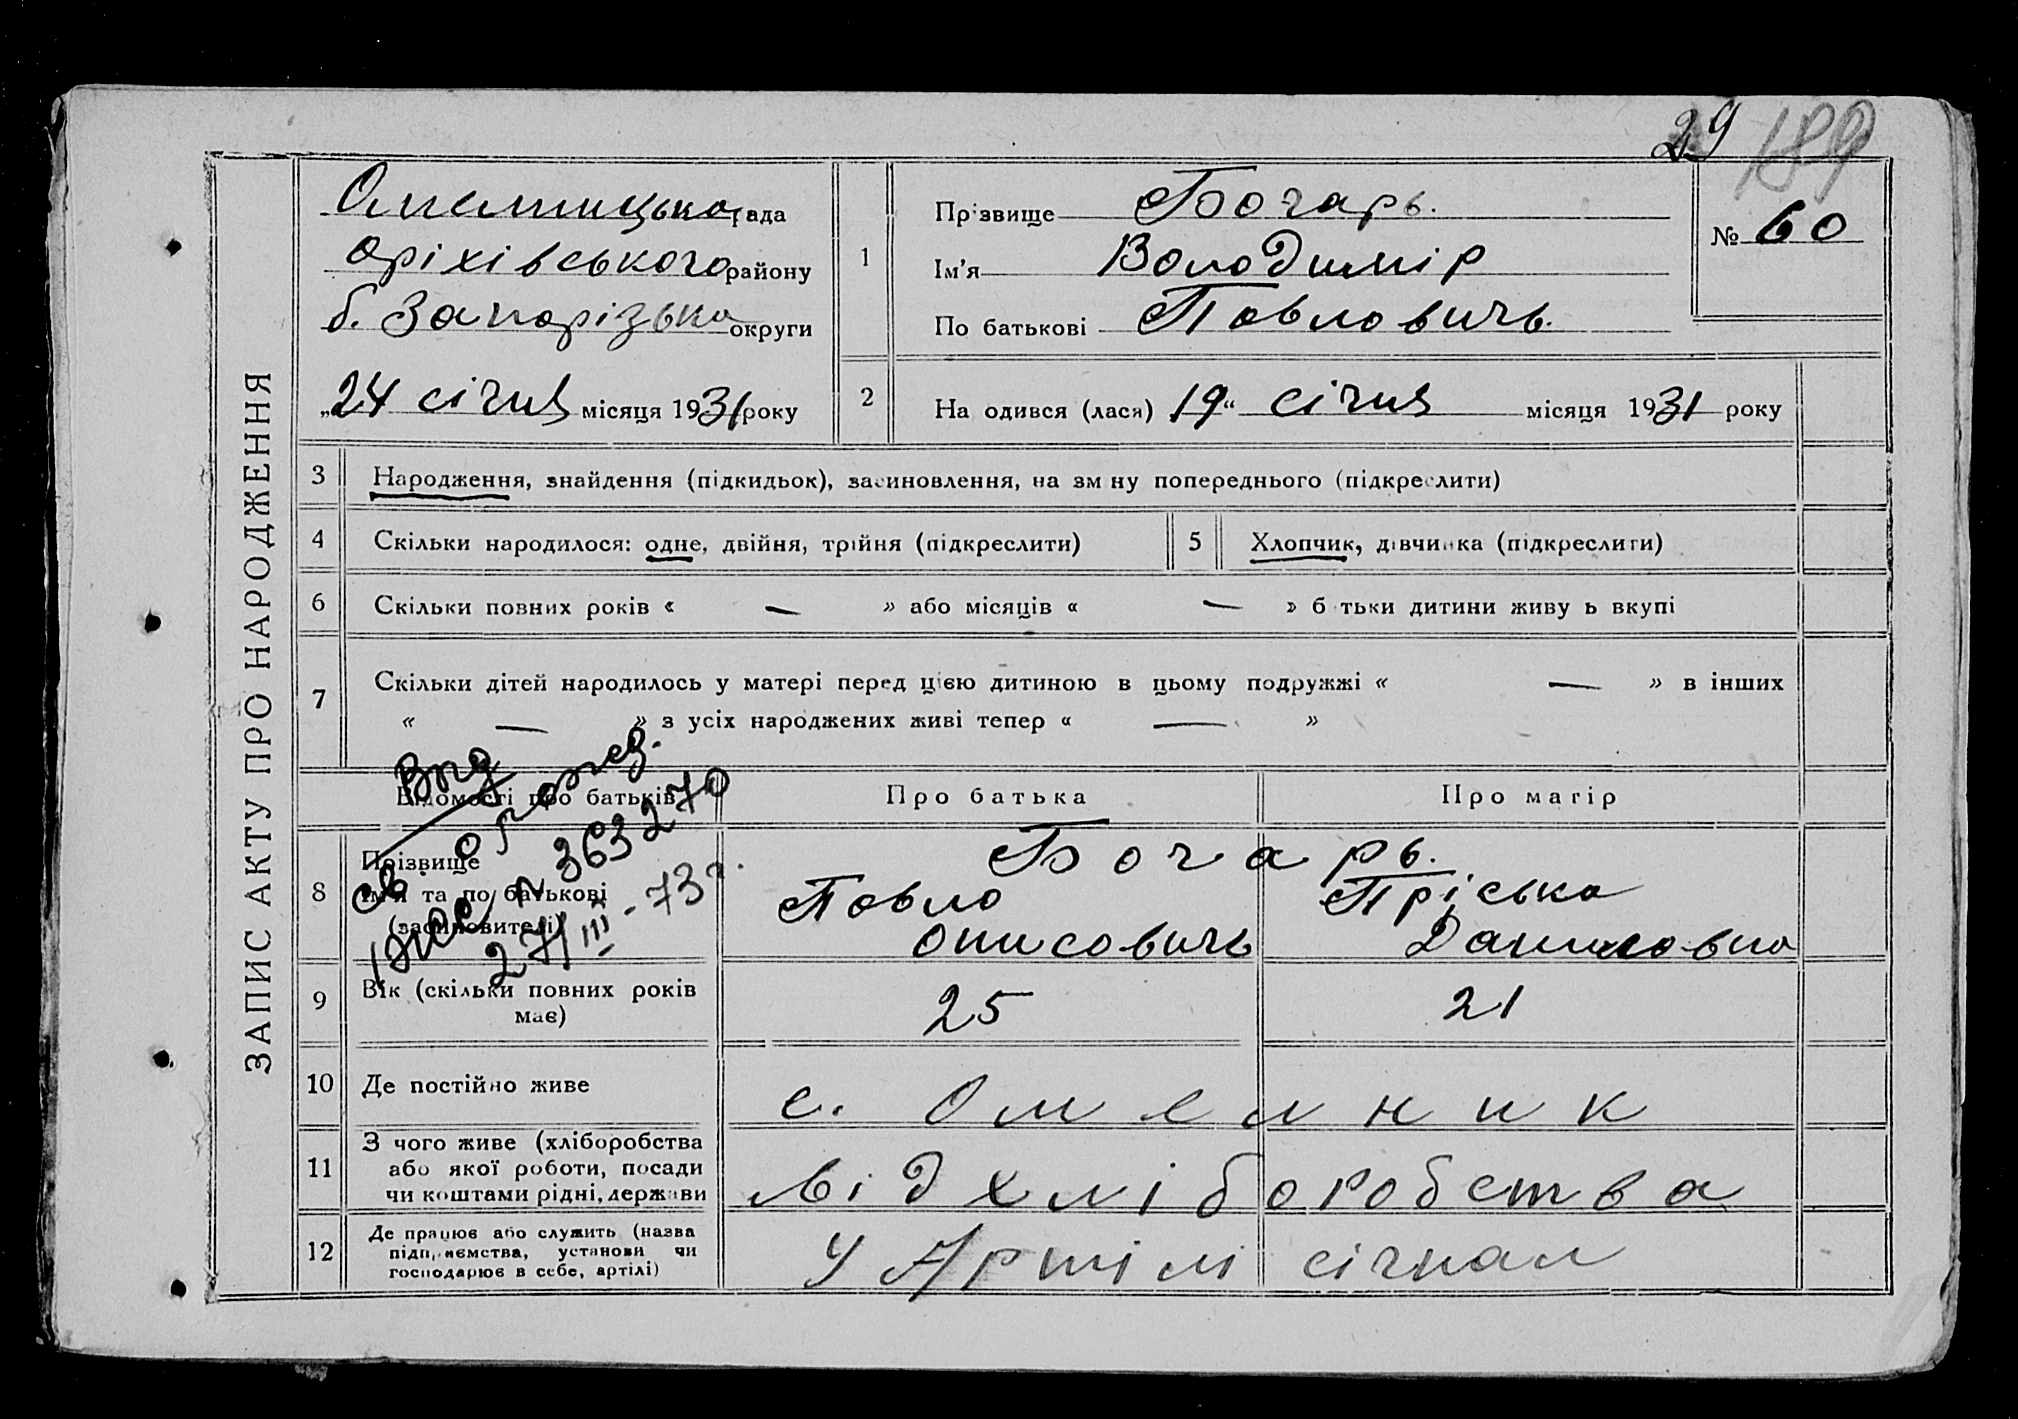 29 189
ЗАПИС АКТУ ПРО НАРОДЖЕННЯ
Омелницька рада
Оріхівського району
б. Запорізька округи
„24 січня місяця 1931 року
1
Прізвище Бочарь.
Ім'я Володимір
По батькові Повловичь.
№ 60
2
На одився (лася) 19“ січня місяця 1931 року
3 Народження, знайдення (підкидьок), засиновлення, на зм ну попереднього (підкреслити)
4 Скільки народилося: одне, двійня, трійня (підкреслити) 5 Хлопчик, дівчинка (підкреслити)
6 Скільки повних років « — » або місяців « — » б тьки дитини живу ь вкупі
7 Скільки дітей народилось у матері перед цією дитиною в цьому подружжі « — » в інших
« — » з усіх народжених живі тепер « — »
Відомості про батьків Про батька Про матір
8 Прізвище
Ім'я та по батькові
(засиновителі)
Бочарь.
Повло Пріська
Онисовичь Даниловна
о рожд.
№ 363270
27/III-73г.
9 Вік (скільки повних років
має)
25 21
10 Де постійно живе с. Омелник
11 З чого живе (хліборобства
або якої роботи, посади
чи коштами рідні, держави
від хліборобства
12 Де працює або служить (назва
підприємства, установи чи
господарює в себе, артілі)
У Артілі сігнал